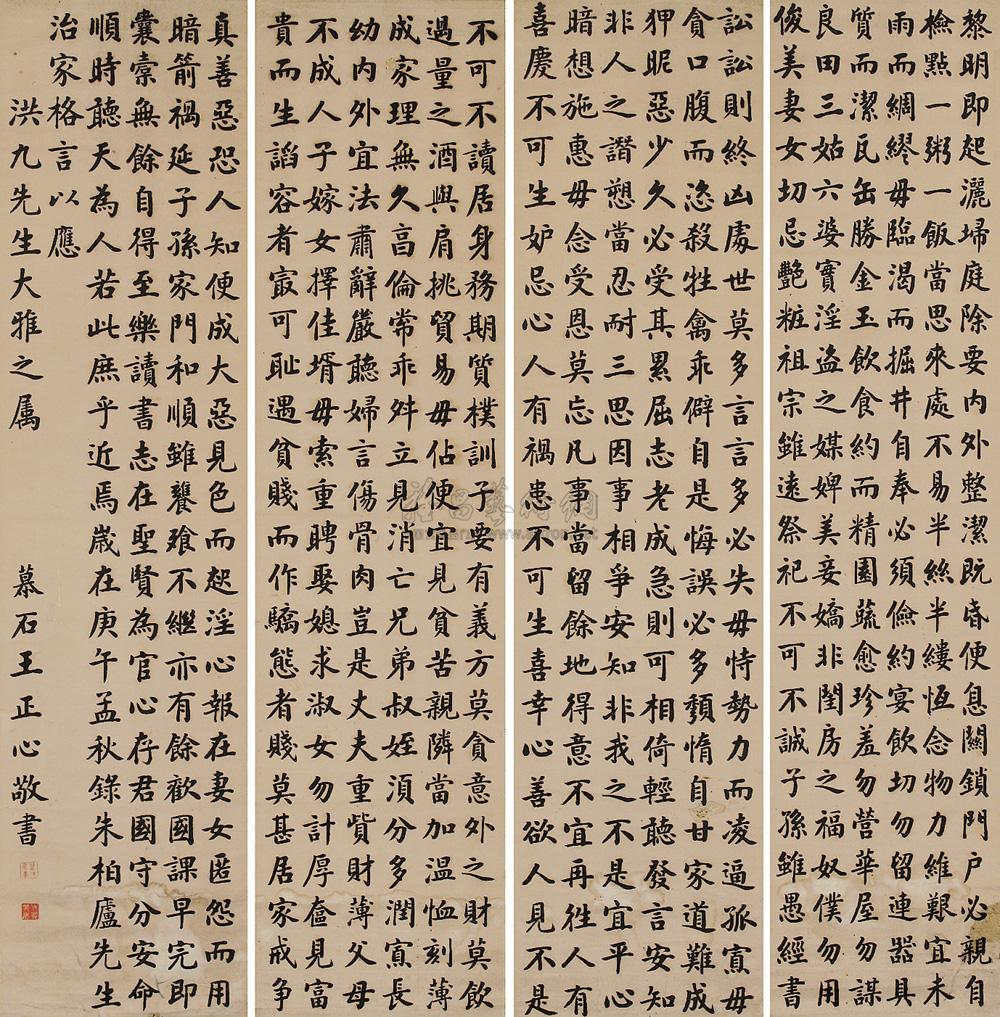 黎明即起灑埽庭除要內外整潔既昏便息關鎖門户必親自
檢點一粥一飯當思來處不易半絲半縷恆念物力維艱宜未
雨而綢繆毋臨渴而掘井自奉必須儉約宴飲切勿留連器具
質而潔瓦缶勝金玉飲食約而精園蔬愈珍羞勿營華屋勿謀
良田三姑六婆實淫盗之媒婢美妾嬌非閨房之福奴僕勿用
俊美妻女切忌艷粧祖宗雖遠祭祀不可不誠子孫雖愚經書
訟訟則終凶處世莫多言言多必失毋恃勢力而凌逼孤寡毋
貪口腹而恣殺牲禽乖僻自是悔誤必多頹惰自甘家道難成
狎昵惡少久必受其累屈志老成急則可相倚輕聽發言安知
非人之譖愬當忍耐三思因事相爭安知非我之不是宜平心
暗想施惠毋念受恩莫忘凡事當留餘地得意不宜再往人有
喜慶不可生妒忌心人有禍患不可生喜幸心善欲人見不是
不可不讀居身務期質樸訓子要有義方莫貪意外之財莫飲
過量之酒與肩挑貿易毋佔便宜見貧苦親隣當加温恤刻薄
成家理無久高倫常乖舛立見消亡兄弟叔姪須分多潤寡長
幼內外宜法肅辭嚴聽婦言傷骨肉豈是丈夫重貲財薄父母
不成人子嫁女擇佳壻毋索重聘娶媳求淑女勿計厚奩見富
貴而生諂容者最可耻遇貧賤而作驕態者賤莫甚居家戒爭
真善惡恐人知便成大惡見色而起淫心報在妻女匿怨而用
暗箭禍延子孫家門和順雖饔飱不繼亦有餘歡國課早完即
囊橐無餘自得至樂讀書志在聖賢為官心存君國守分安命
順時聽天為人若此庶乎近焉歲在庚午孟秋錄朱柏廬先生
治家格言以應
洪九先生大雅之属
慕石王正心敬書